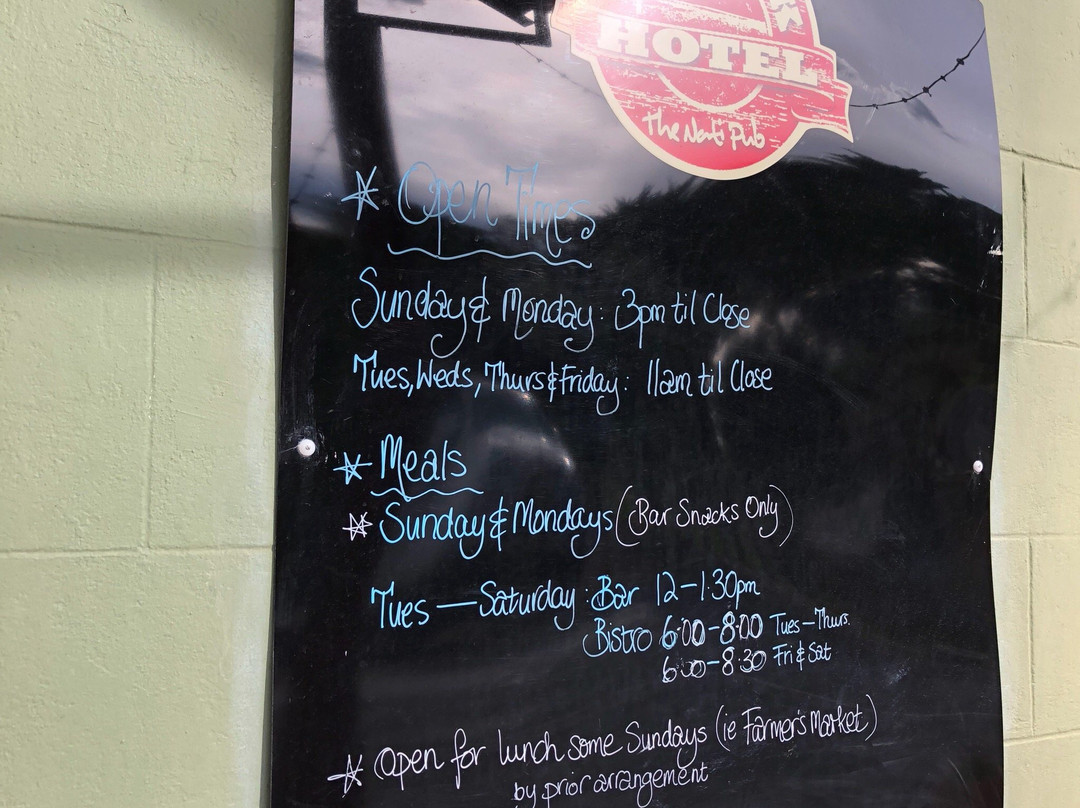 HOTEL
The Nati Pub
Open Times
Sunday & Monday: 3pm til Close
Tues, Weds, Thurs & Friday: 11am til Close
Meals
Sunday & Mondays (Bar Snacks Only)
Tues — Saturday: Bar 12 – 1.30pm
Bistro 6:00 – 8:00 Tues – Thurs.
6:00 – 8:30 Fri & Sat
Open for lunch some Sundays (ie Farmer's Market)
by prior arrangement